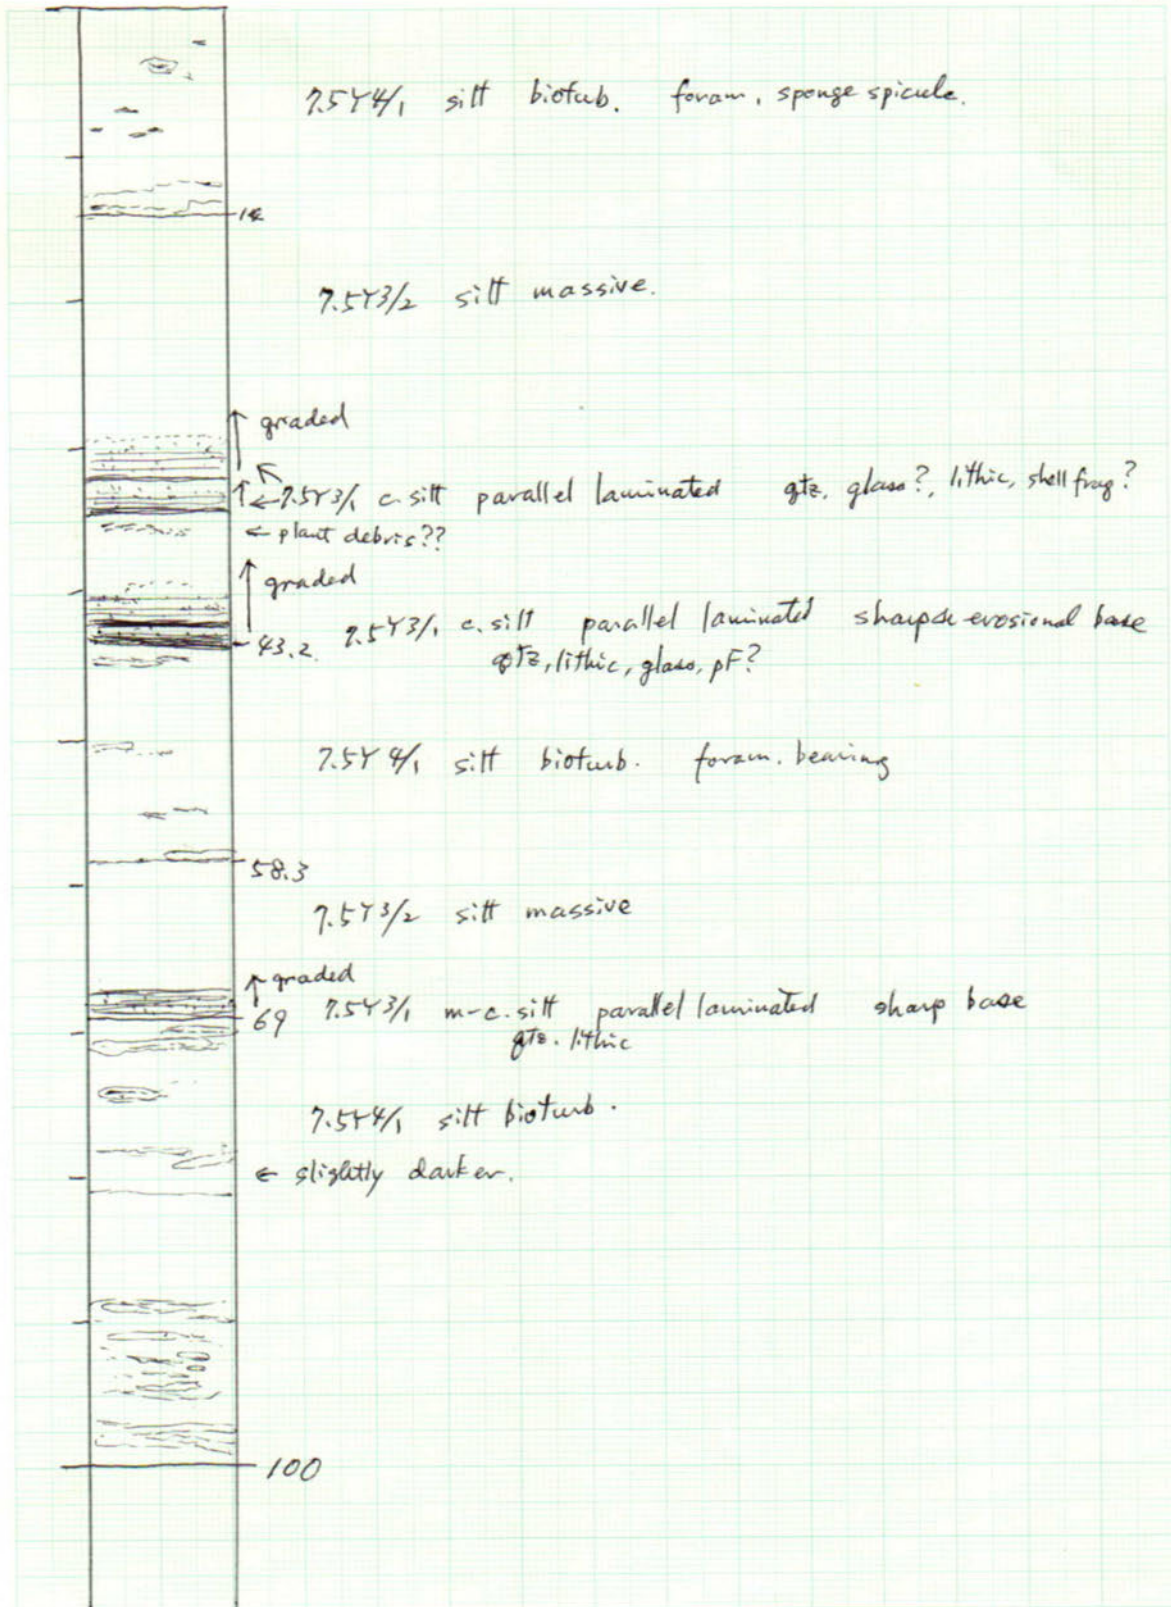 7.5Y4/1 silt biotub. foram, sponge spicule.
14
7.5Y3/2 silt massive.
graded
7.5Y3/1 c.silt parallel laminated qtz, glass?, lithic, shell frag?
← plant debris??
graded
43.2 7.5Y3/1 c.silt parallel laminated sharp erosional base
qtz, lithic, glass, pF?
7.5Y4/1 silt bioturb. foram. bearing
58.3
7.5Y3/2 silt massive
graded
69 7.5Y3/1 m-c.silt parallel laminated sharp base
qtz. lithic
7.5Y4/1 silt bioturb.
← slightly darker.
100